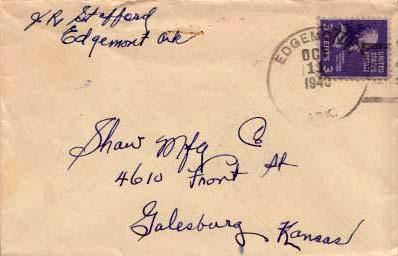 J.R. Stafford
Edgemont Ark
EDGEMONT
OC
1940
ARK.
UNITED STATES
3 CENTS 3
Shaw Mfg Co
4610 Front St
Galesburg Kansas